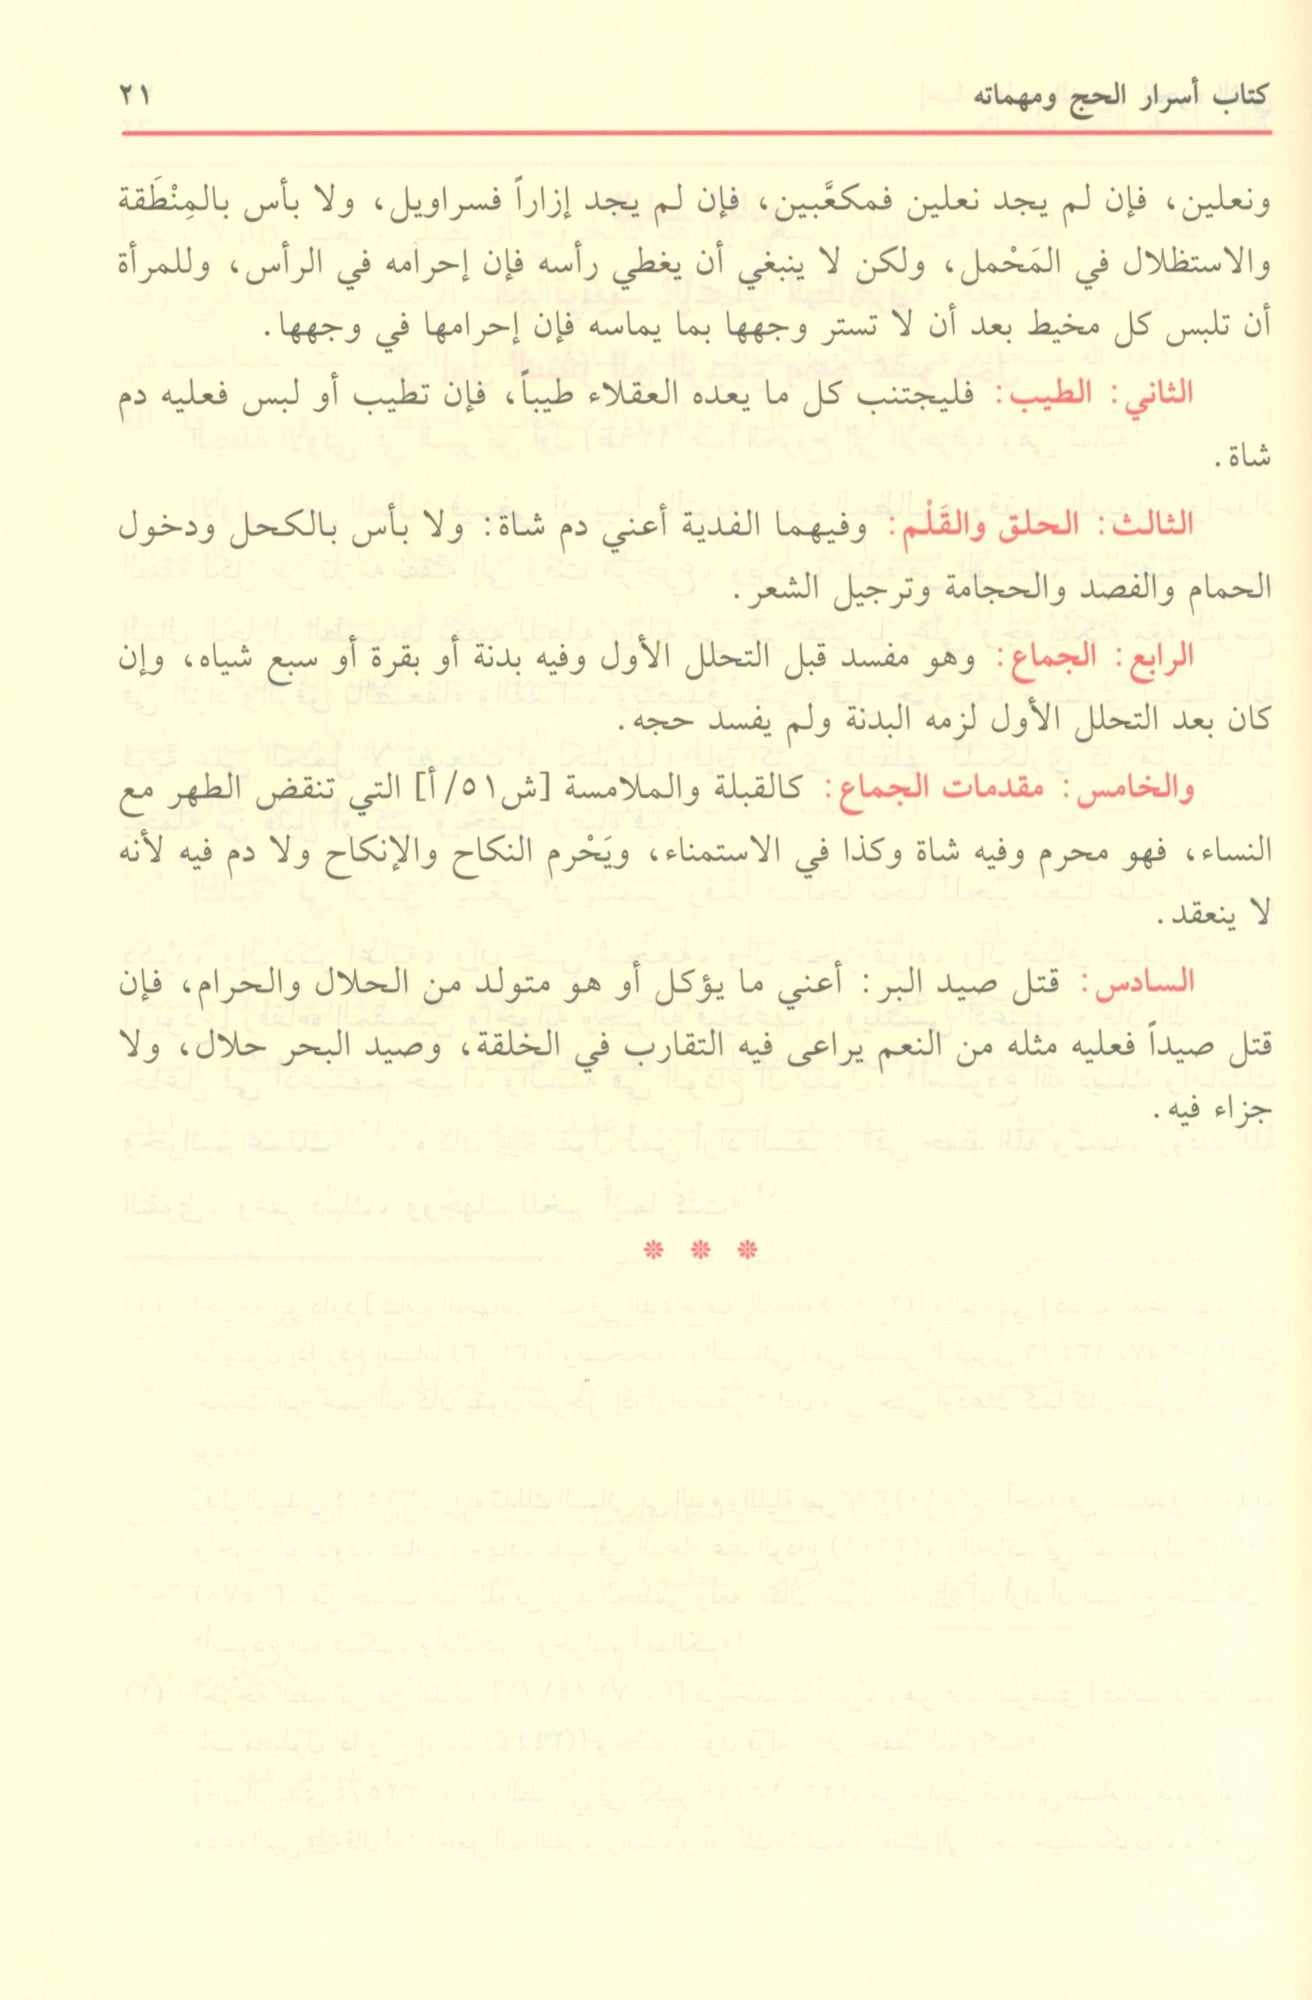 كتاب أسرار الحج ومهماته ٢١
ونعلين، فإن لم يجد نعلين فمكعَّبين، فإن لم يجد إزاراً فسراويل، ولا بأس بالمِنْطَقة
والاستظلال في المَحْمل، ولكن لا ينبغي أن يغطي رأسه فإن إحرامه في الرأس، وللمرأة
أن تلبس كل مخيط بعد أن لا تستر وجهها بما يماسه فإن إحرامها في وجهها.
الثاني: الطيب: فليجتنب كل ما يعده العقلاء طيباً، فإن تطيب أو لبس فعليه دم
شاة.
الثالث: الحلق والقَلْم: وفيهما الفدية أعني دم شاة: ولا بأس بالكحل ودخول
الحمام والفصد والحجامة وترجيل الشعر.
الرابع: الجماع: وهو مفسد قبل التحلل الأول وفيه بدنة أو بقرة أو سبع شياه، وإن
كان بعد التحلل الأول لزمه البدنة ولم يفسد حجه.
والخامس: مقدمات الجماع: كالقبلة والملامسة [ش٥١/أ] التي تنقض الطهر مع
النساء، فهو محرم وفيه شاة وكذا في الاستمناء، ويَحْرم النكاح والإنكاح ولا دم فيه لأنه
لا ينعقد.
السادس: قتل صيد البر: أعني ما يؤكل أو هو متولد من الحلال والحرام، فإن
قتل صيداً فعليه مثله من النعم يراعى فيه التقارب في الخلقة، وصيد البحر حلال، ولا
جزاء فيه.